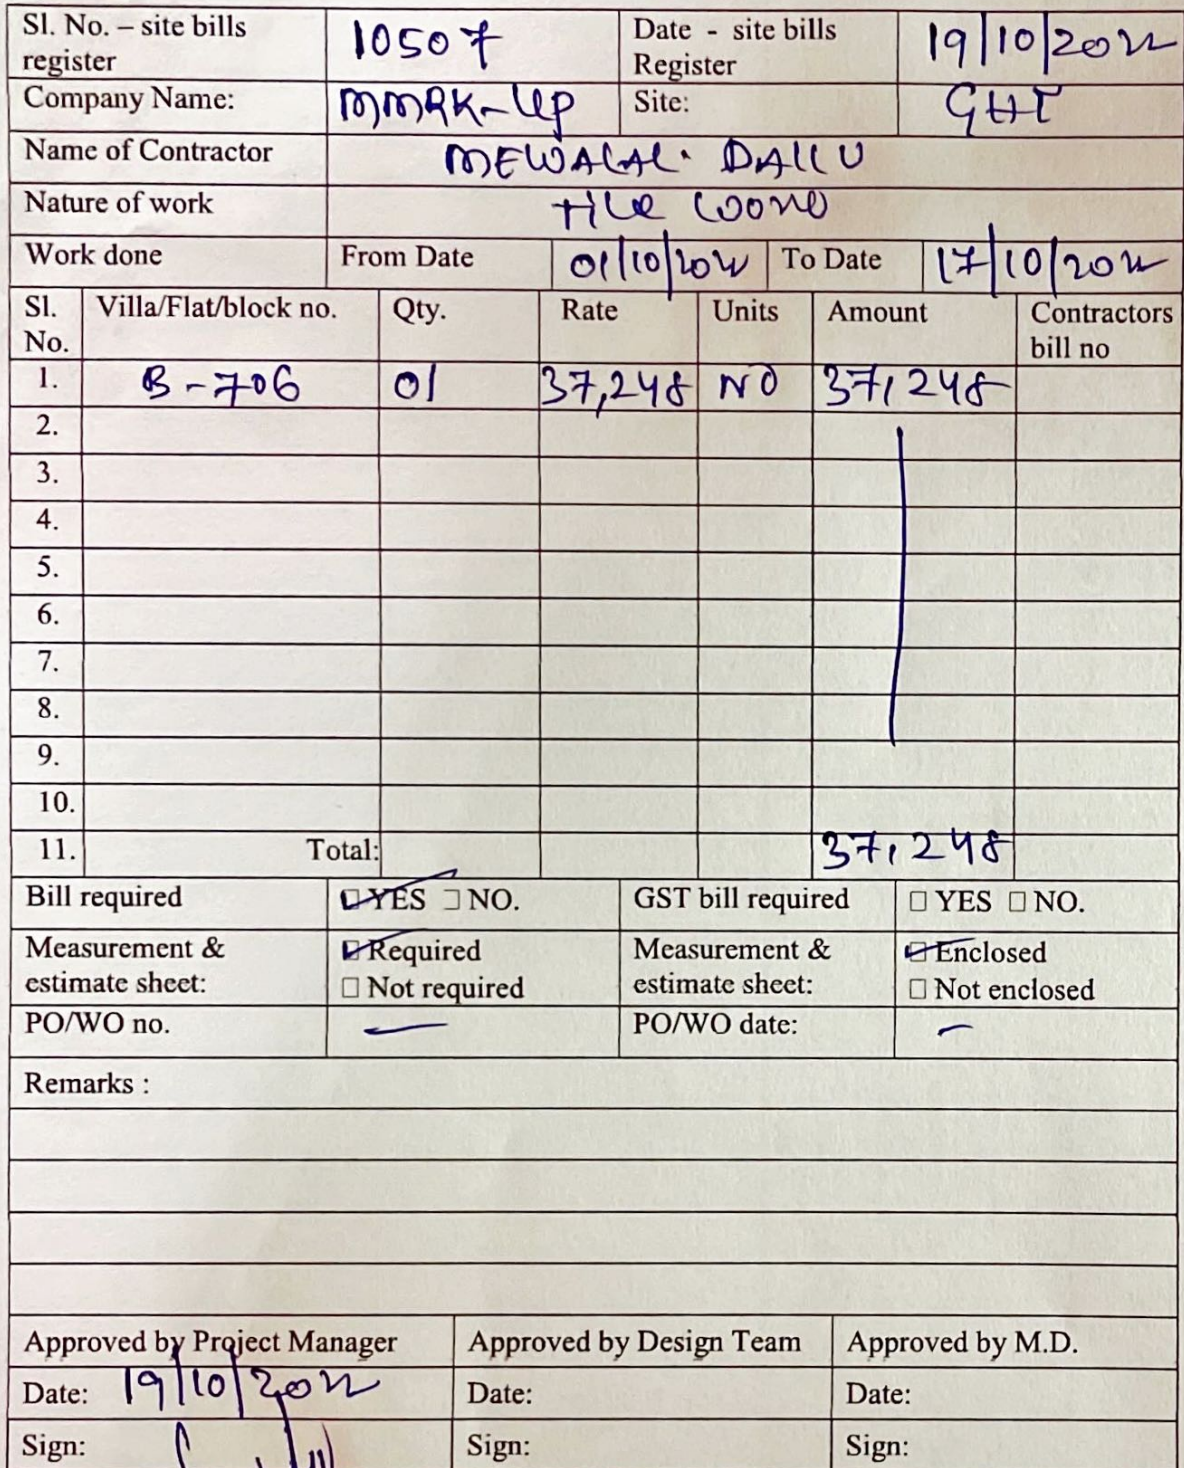 Sl. No. – site bills register 10507 Date - site bills Register 19/10/2022
Company Name: MMRK-Up Site: GHT
Name of Contractor MEWALAL. DALLU
Nature of work tile work
Work done From Date 01/10/2022 To Date 17/10/2022
Sl. No. Villa/Flat/block no. Qty. Rate Units Amount Contractors bill no
1. B-706 01 37,248 NO 37,248
2.
3.
4.
5.
6.
7.
8.
9.
10.
11. Total: 37,248
Bill required ☑ YES ☐ NO. GST bill required ☐ YES ☐ NO.
Measurement & estimate sheet: ☑ Required ☐ Not required Measurement & estimate sheet: ☑ Enclosed ☐ Not enclosed
PO/WO no. — PO/WO date: —
Remarks :
Approved by Project Manager Approved by Design Team Approved by M.D.
Date: 19/10/2022 Date: Date:
Sign: Sign: Sign: